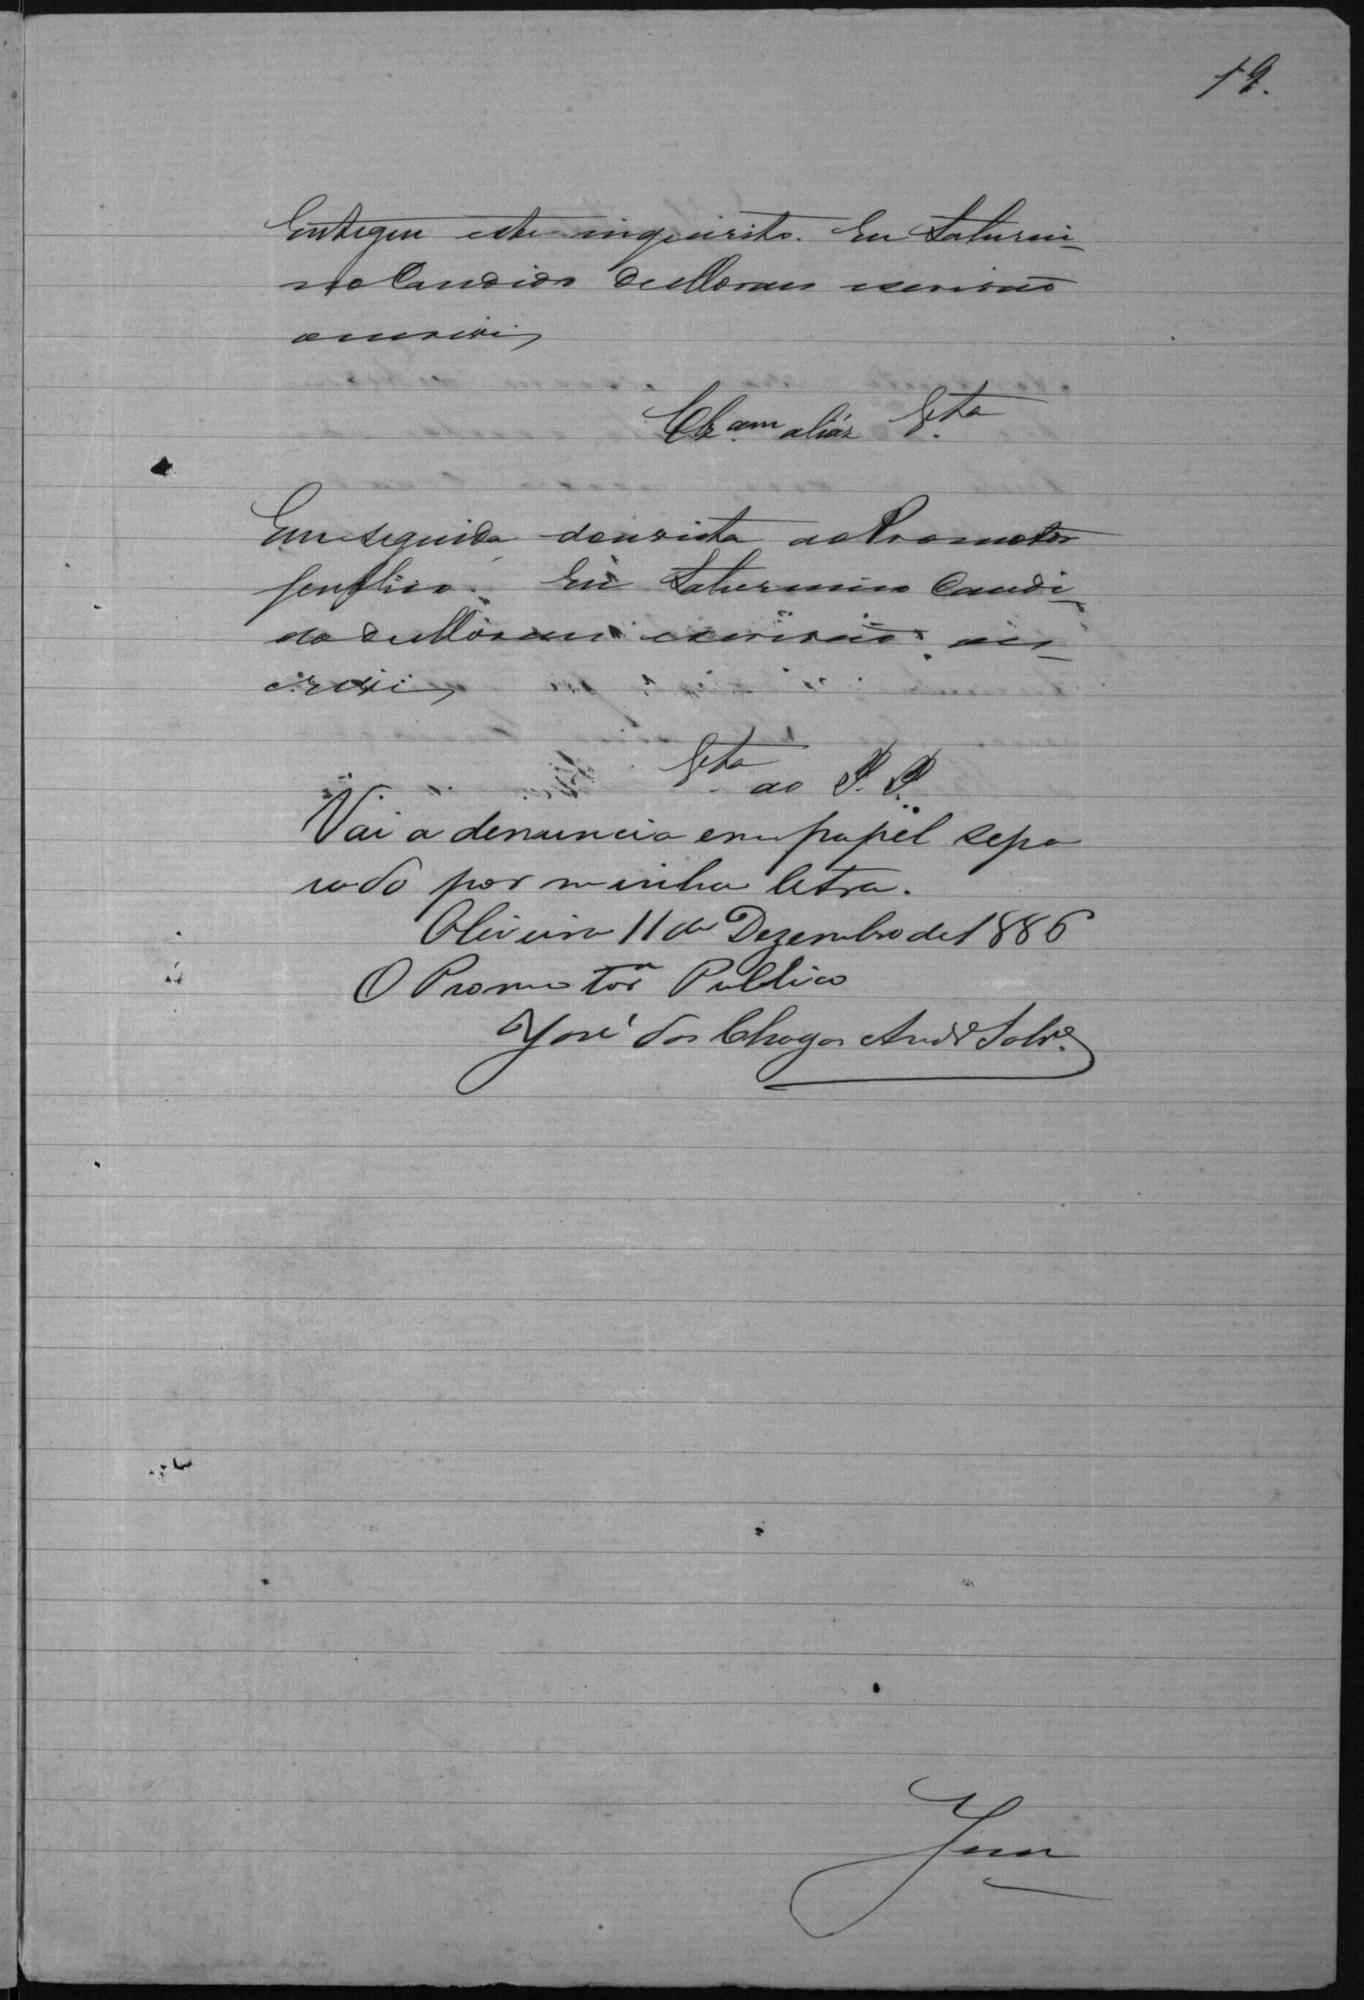 19.
Entreguei este inquerito. Eu Saturni-
no Candido de Moraes escrivão
o escrivi,
Cls.am aliás V.ta
Em seguida dou vista ao Promotor
publico. Eu Saturnino Candi-
do de Moraes escrivão, es-
crevi,
V.ta ao P. P.
Vai a denuncia em papel sepa
rado por minha letra.
Oliveira 11 de Dezembro de 1886
O Promotor Publico
José das Chagas And.e Sobr.o